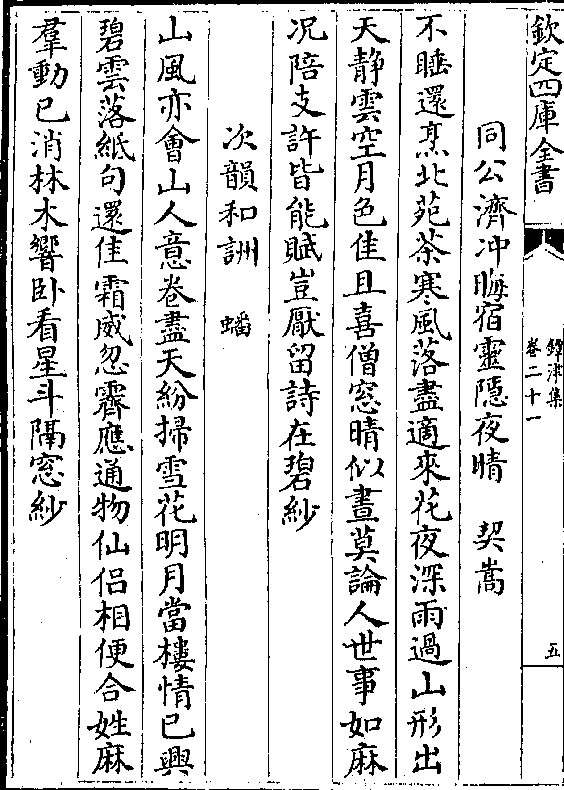 欽定四庫全書
鐔津集
卷二十一
五
同公濟冲晦宿靈隠夜晴 契嵩
不睡還烹北苑茶寒風落盡適來花夜深雨過山形出
天静雲空月色佳且喜僧窓晴似晝莫論人世事如麻
况陪支許皆能賦豈厭留詩在碧紗
次韻和詶 蟠
山風亦會山人意卷盡天紛掃雪花明月當樓情已興
碧雲落紙句還佳霜威忽霽應通物仙侣相便合姓麻
羣動已消林木響卧看星斗隔窓紗